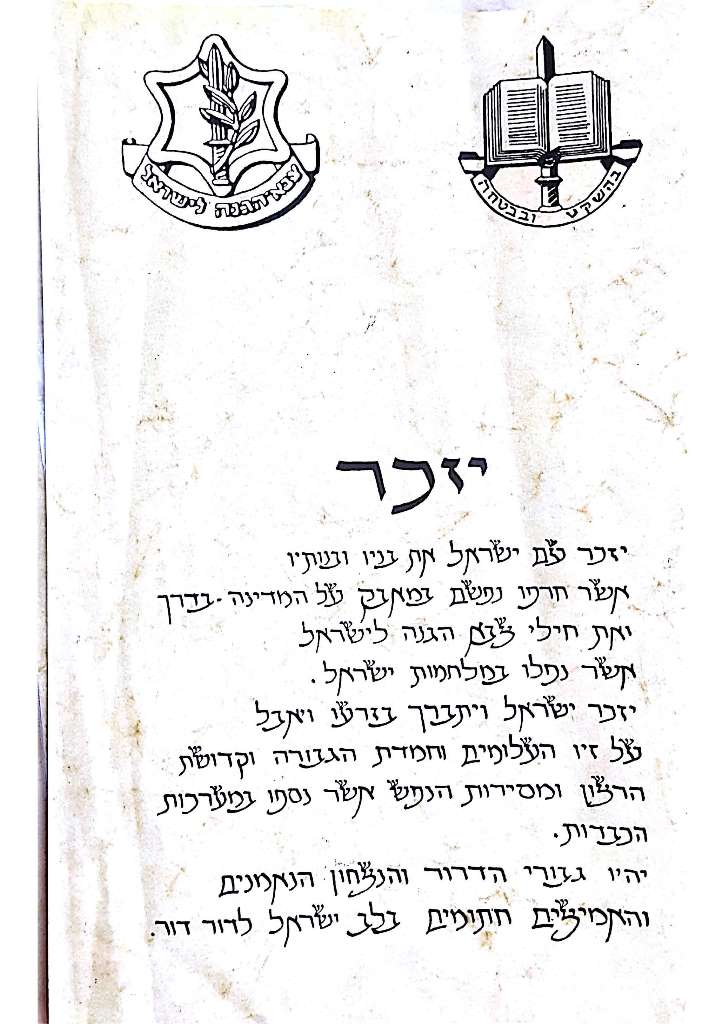 צבא הגנה לישראל
בהשקט ובבטחה
יזכר
יזכר עם ישראל את בניו ובנותיו
אשר חרפו נפשם במאבק על המדינה-בדרך
ואת חילי צבא הגנה לישראל
אשר נפלו במלחמות ישראל.
יזכר ישראל ויתברך בזרעו ויאבל
על זיו העלומים וחמדת הגבורה וקדושת
הרצון ומסירות הנפש אשר נספו במערכות
הכבדות.
יהיו גבורי הדרור והנצחון הנאמנים
והאמיצים חתומים בלב ישראל לדור דור.